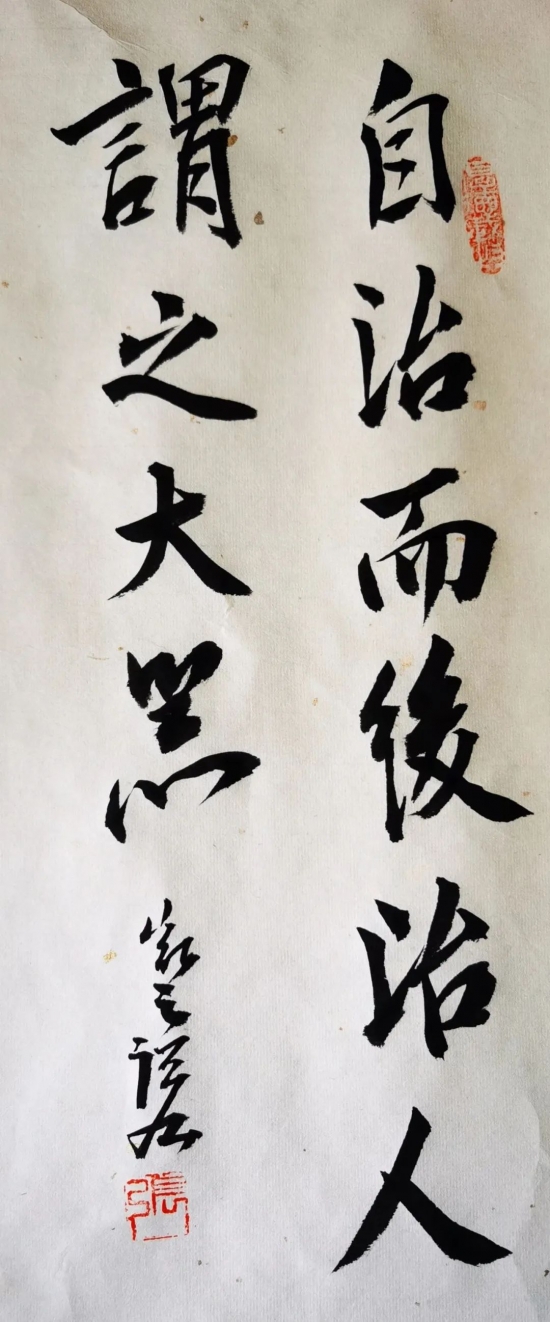 自治而後治人
謂之大器
張